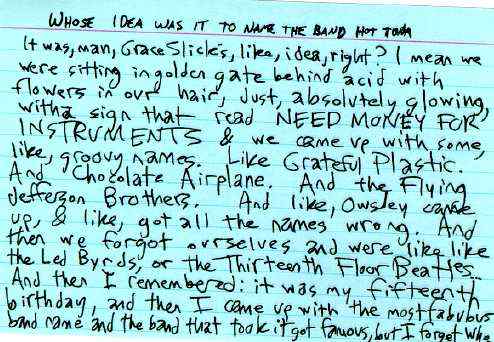 WHOSE IDEA WAS IT TO NAME THE BAND HOT TUNA
It was, man, Grace Slick's, like, idea, right? I mean we
were sitting in golden gate behind acid with
flowers in our hair, Just, absolutely glowing,
with a sign that read NEED MONEY FOR
INSTRUMENTS & we came up with some,
like, groovy names. Like Grateful Plastic.
And Chocolate Airplane. And the Flying
Jefferson Brothers. And like, Owsley came
up, & like, got all the names wrong. And
then we forgot ourselves and were like like
the Led Byrds, or the Thirteenth Floor Beatles...
And then I remembered: it was my fifteenth
birthday, and then I came up with the most fabulous
band name and the band that took it got famous, but I forget